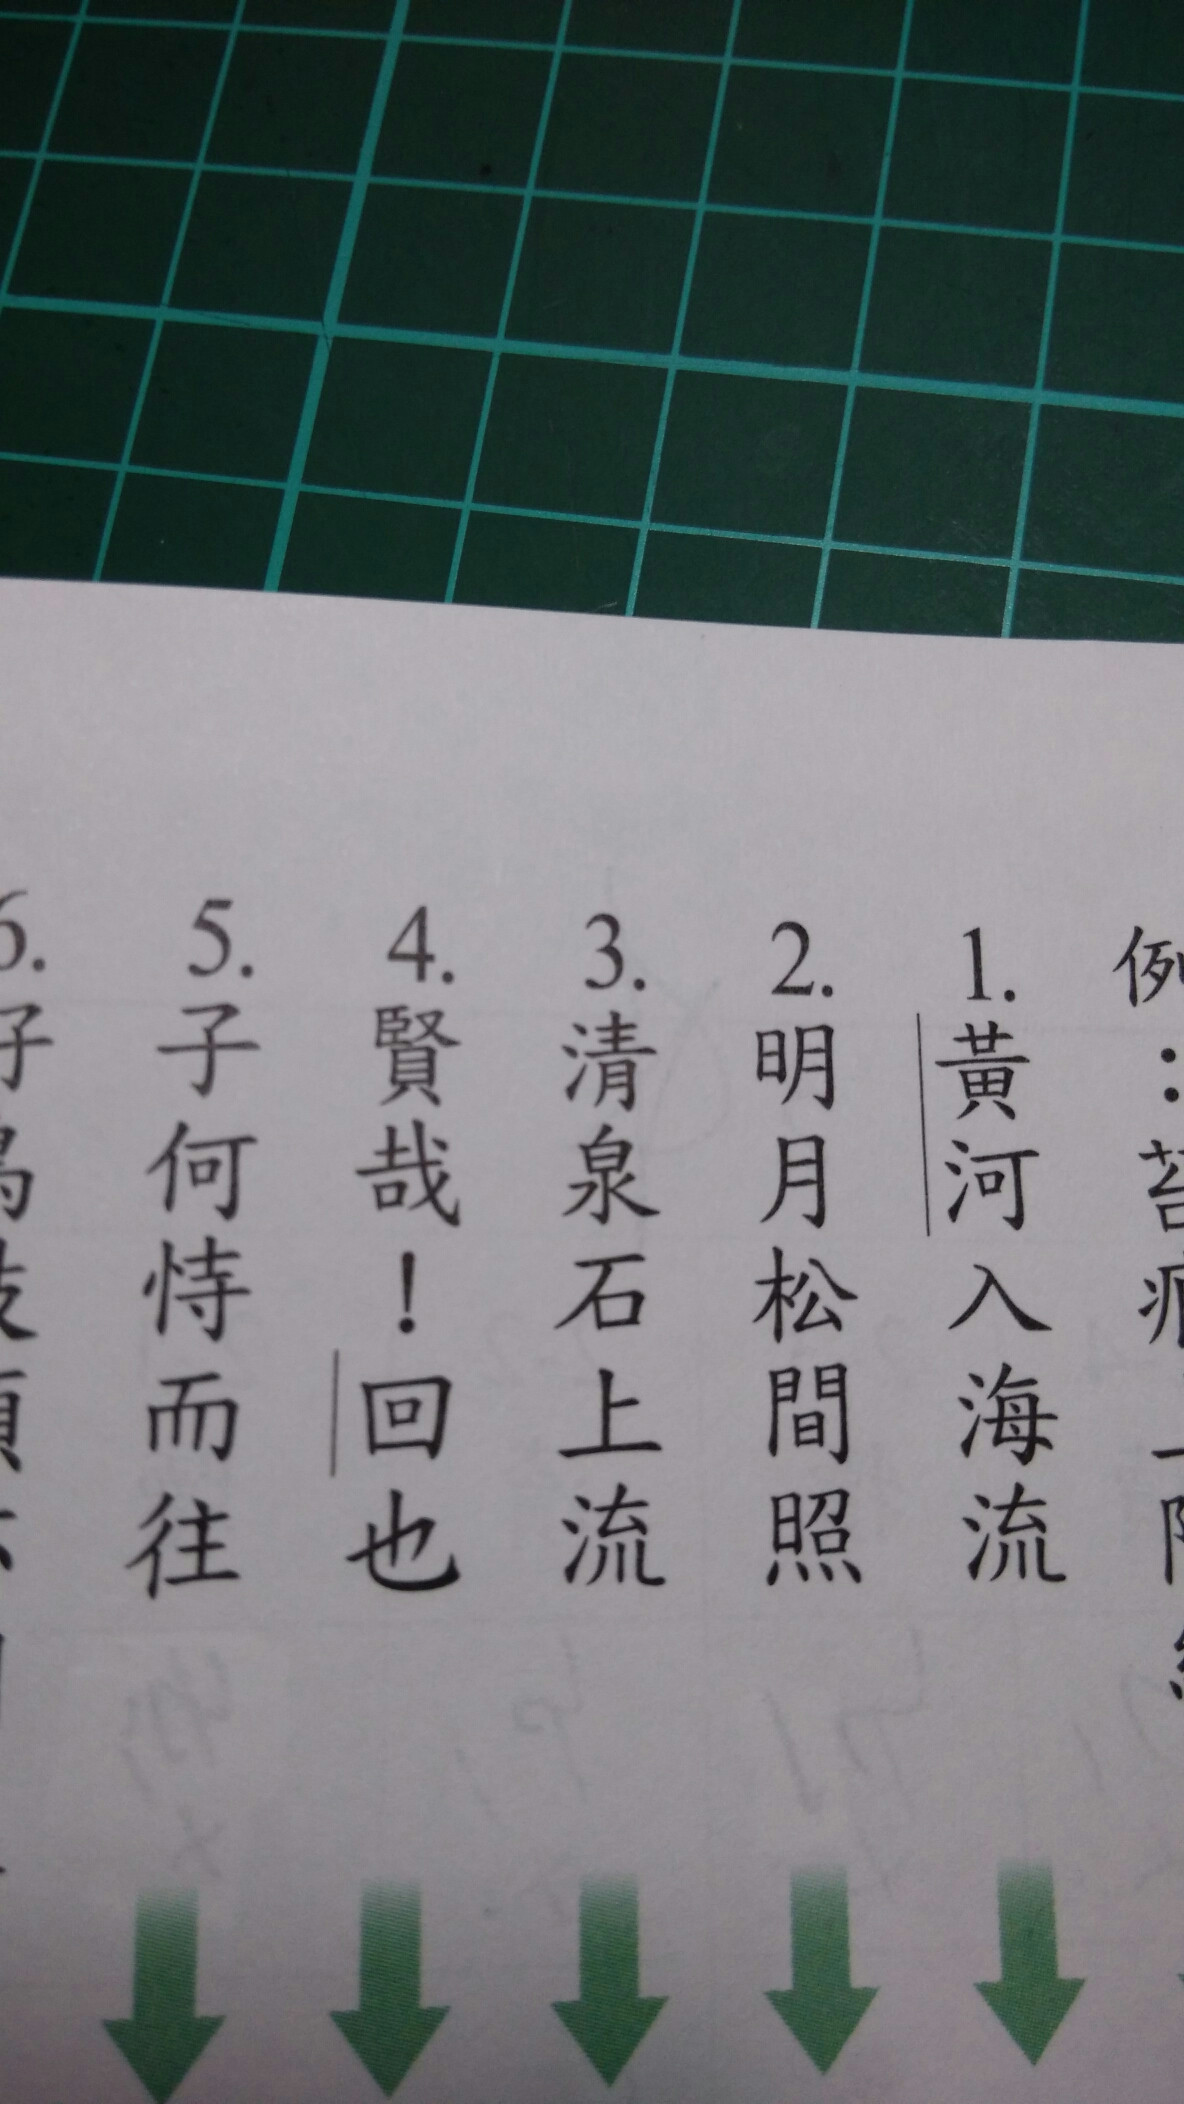 例：苔痕上階
1.黃河入海流
2.明月松間照
3.清泉石上流
4.賢哉！回也
5.子何恃而往
6.